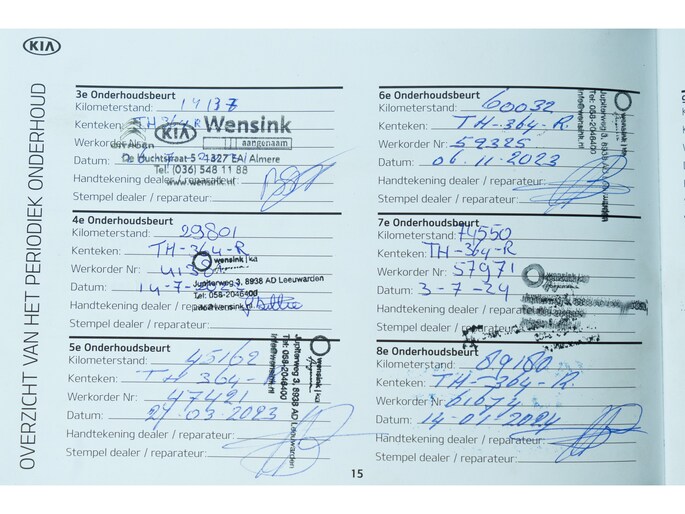 KIA
OVERZICHT VAN HET PERIODIEK ONDERHOUD
3e Onderhoudsbeurt
Kilometerstand:
Kenteken: TH-364-R
KIA Wensink
aangenaam
Werkorder
De Vluchtstraat 5 1327 EA/ Almere
Datum:
Tel. (036) 548 11 88
Handtekening dealer / reparateur:
www.wensink.nl
Stempel dealer / reparateur:
4e Onderhoudsbeurt
Kilometerstand: 29801
Kenteken: TH-364-R
wensink | kia
Werkorder Nr:
Jupiterweg 3, 8938 AD Leeuwarden
Datum: 14-7-
Tel: 058-2046400
Handtekening dealer / reparateur:
info@wensink.nl
Stempel dealer / reparateur:
5e Onderhoudsbeurt
Kilometerstand: 45162
Kenteken: TH 364-R
Werkorder Nr: 47421
Datum: 24-03-2023
Handtekening dealer / reparateur:
Stempel dealer / reparateur:
wensink | kia
Jupiterweg 3, 8938 AD Leeuwarden
Tel: 058-2046400
info@wensink.nl
6e Onderhoudsbeurt
Kilometerstand: 60032
Kenteken: TH-364-R
Werkorder Nr: 59325
Datum: 06.11-2023
Handtekening dealer / reparateur:
Stempel dealer / reparateur:
wensink
Jupiterweg 3, 8938 AD
Tel: 058-2046400
info@wensink.nl
7e Onderhoudsbeurt
Kilometerstand: 74550
Kenteken: TH-364-R
Werkorder Nr: 57971
wensink
Datum: 3-7-24
Handtekening dealer / reparateur:
Stempel dealer / reparateur:
8e Onderhoudsbeurt
Kilometerstand: 89180
Kenteken: TH-364-R
Werkorder Nr: 61674
Datum: 14-01-2024
Handtekening dealer / reparateur:
Stempel dealer / reparateur:
15